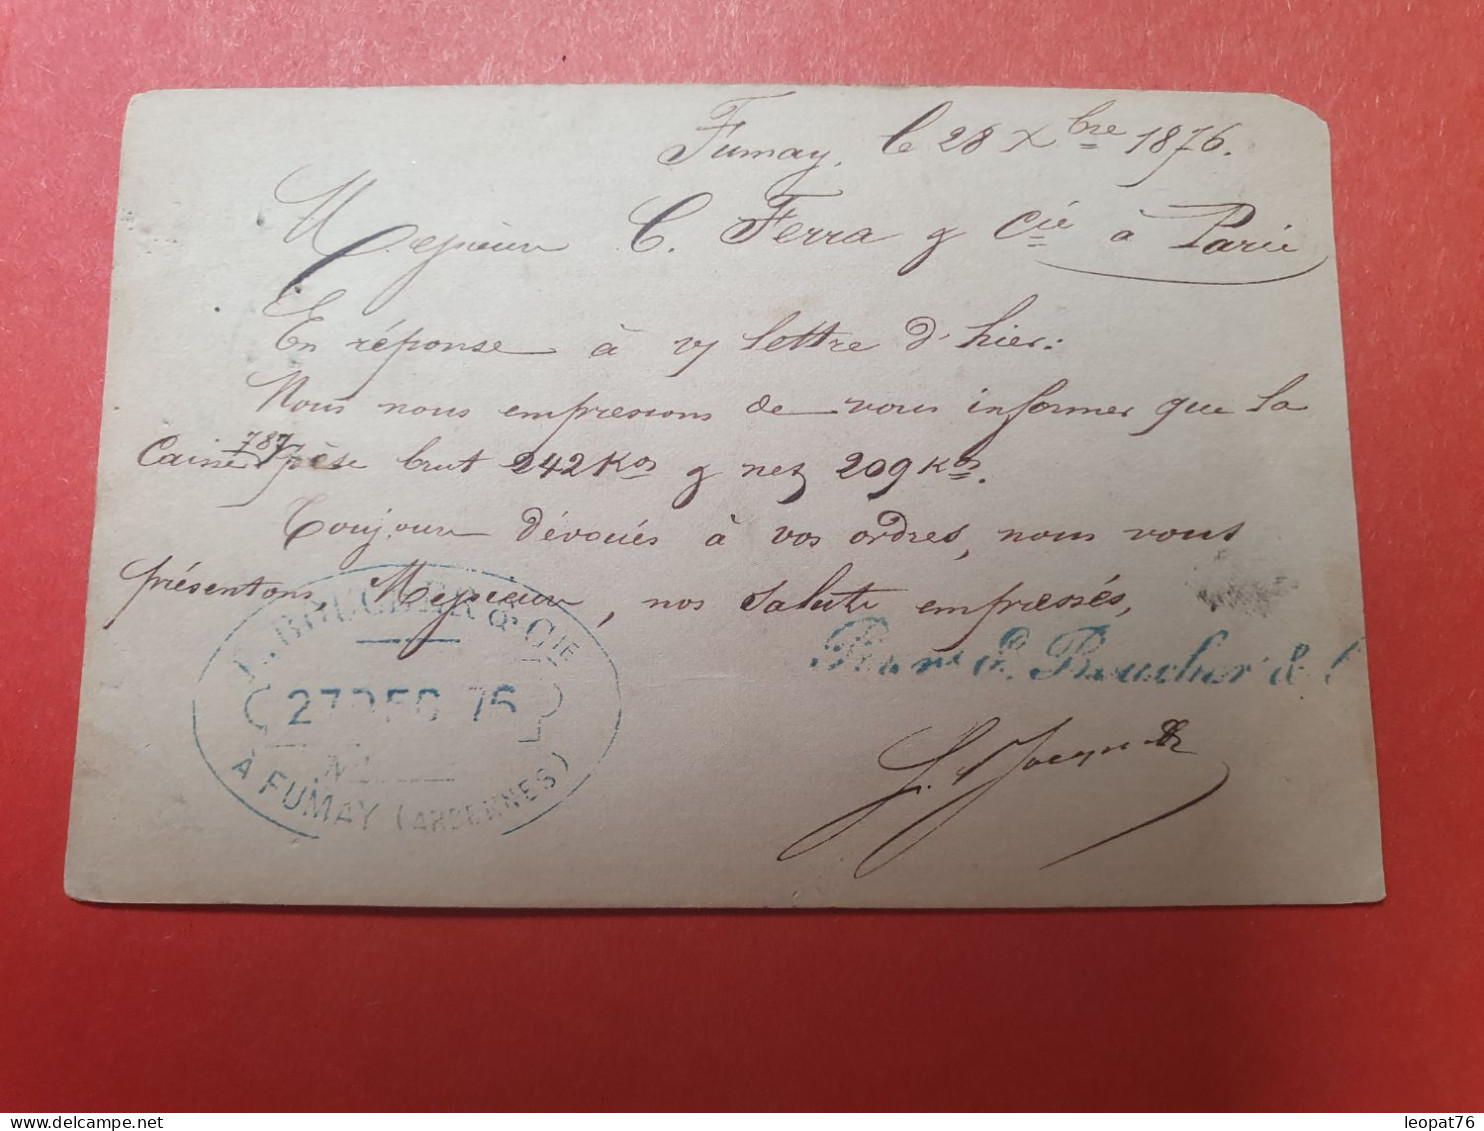 Fumay, le 28 Xbre 1876.
Messieurs C. Ferra & Cie à Paris
En réponse à v/ lettre d'hier:
Nous nous empressons de vous informer que la
Caisse 787 pèse brut 242 Kos & net 209 Kos.
Toujours dévoués à vos ordres, nous vous
présentons, Messieurs, nos saluts empressés,
L. BOUCHER & CIE
27 DEC 76
A FUMAY (ARDENNES)
L. Boucher &